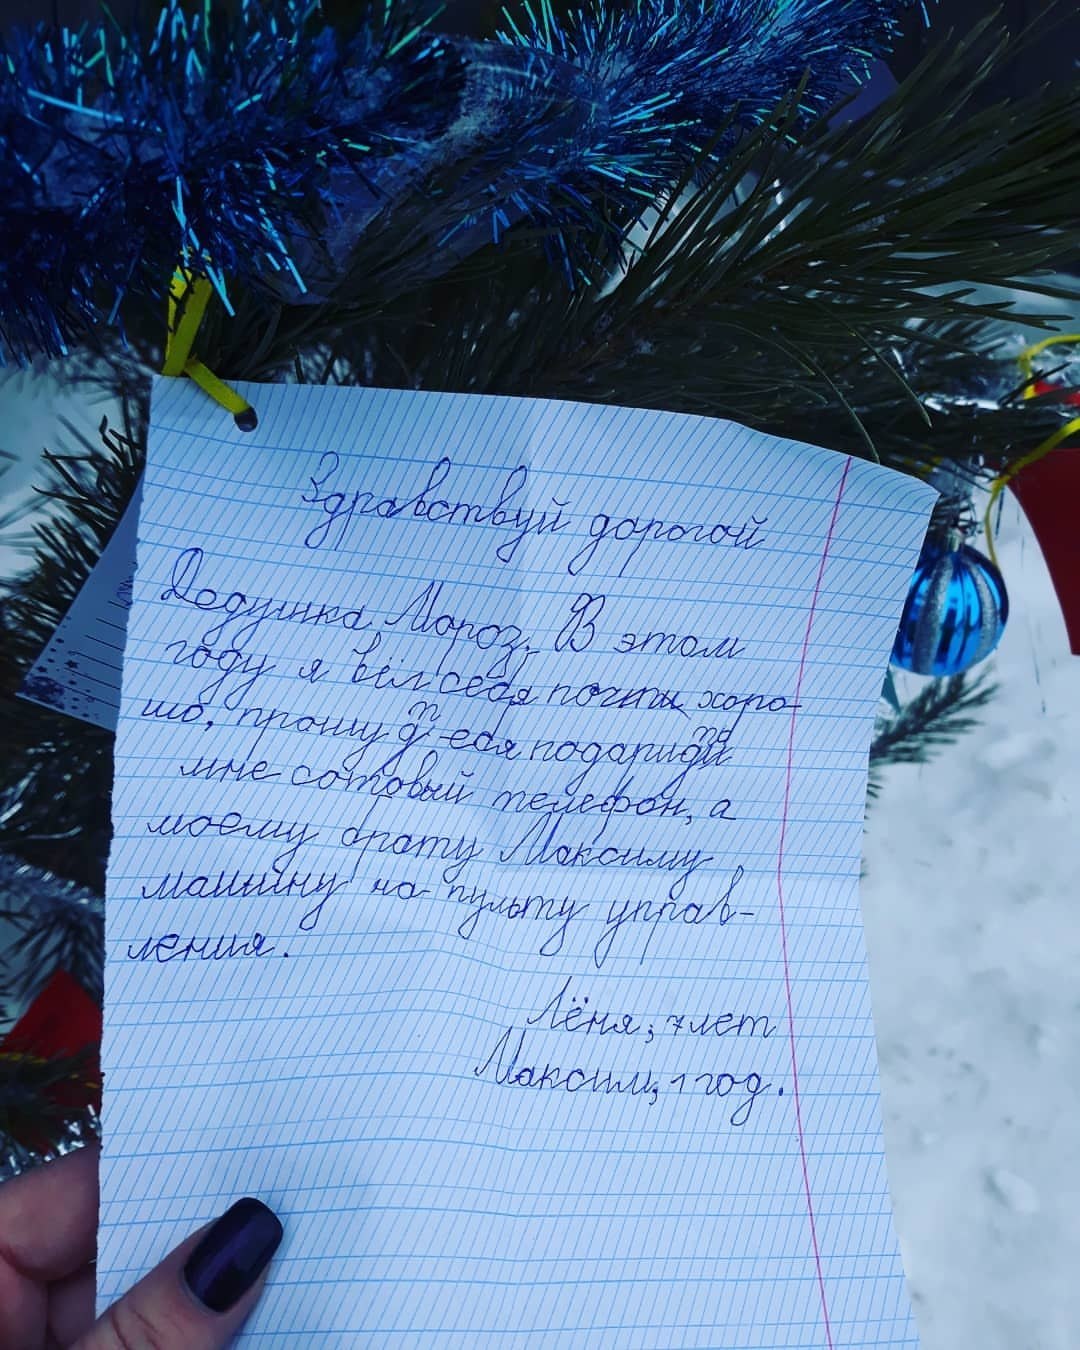 Здравствуй дорогой
Дедушка Мороз. В этом
году я вёл себя почти хоро-
шо, прошу тебя подари
мне сотовый телефон, а
моему брату Максиму
машину на пульту управ-
ления.
Лёня, 7 лет
Максим, 1 год.